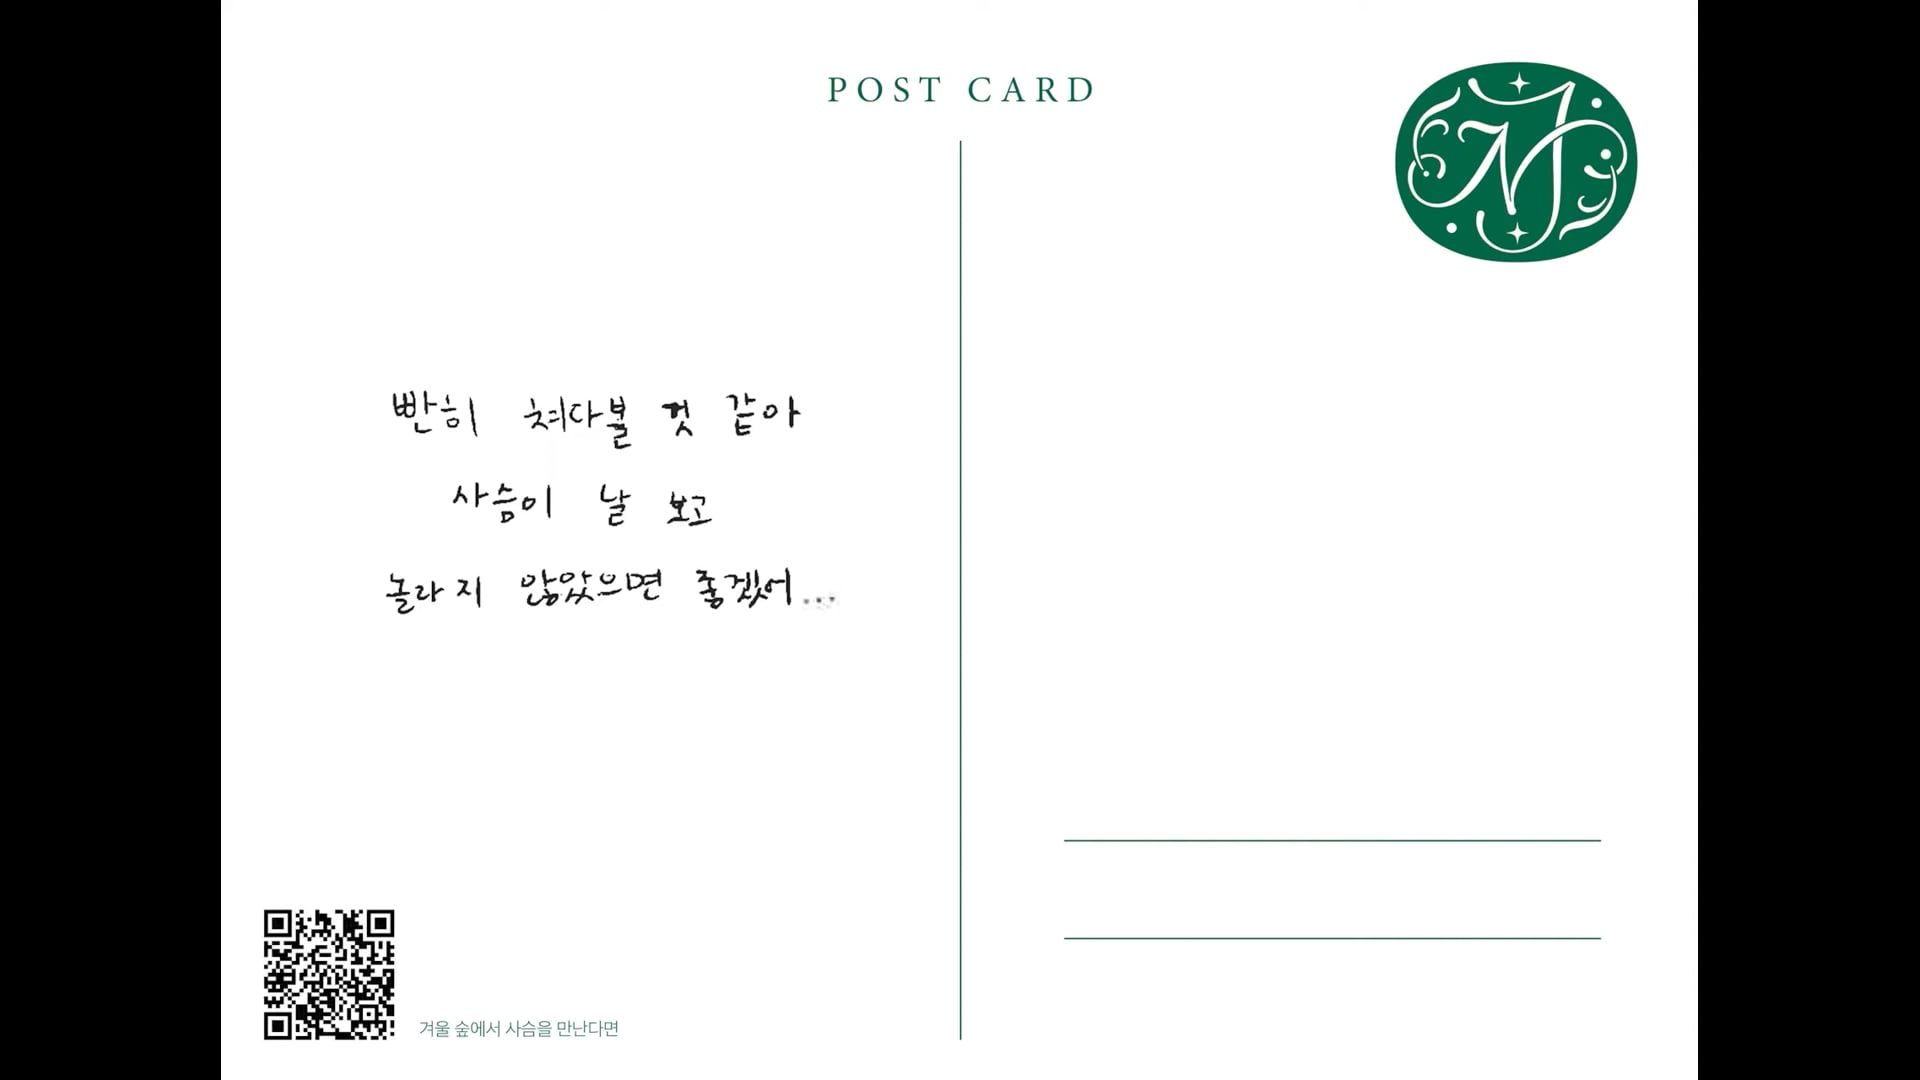 POST CARD
빤히 쳐다볼 것 같아
사슴이 날 보고
놀라지 않았으면 좋겠어...
겨울 숲에서 사슴을 만난다면